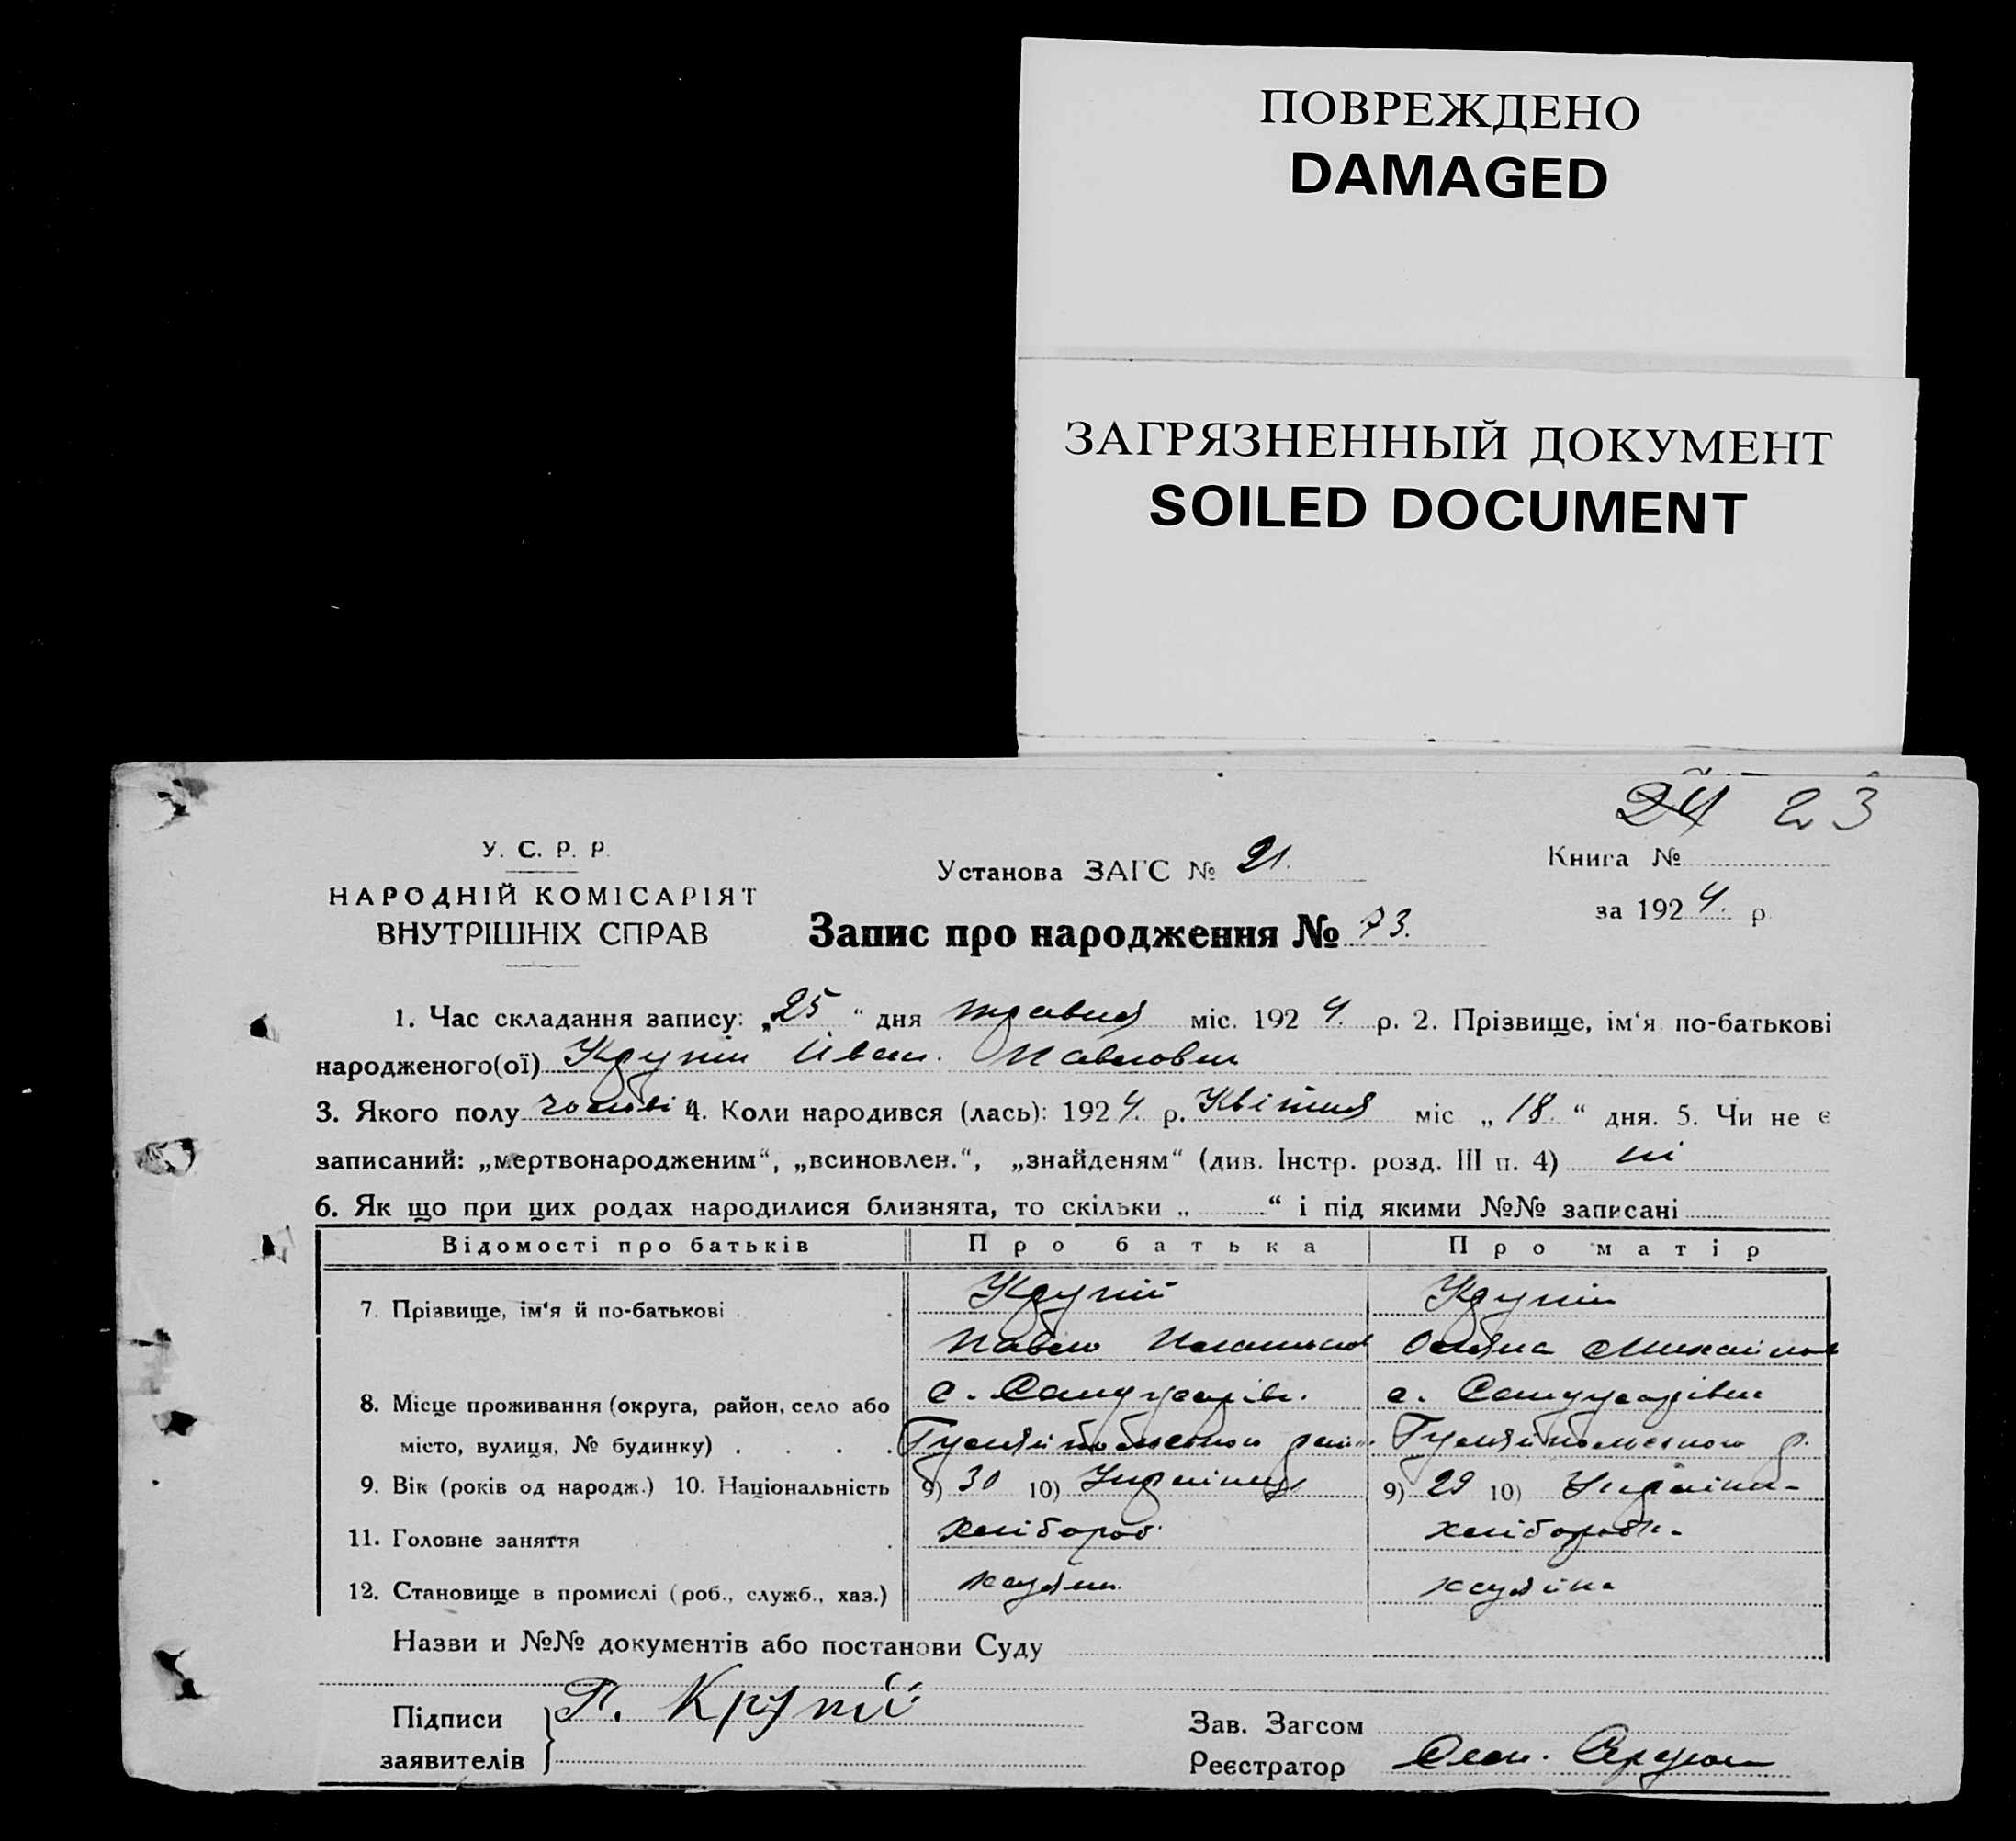 ПОВРЕЖДЕНО
DAMAGED
ЗАГРЯЗНЕННЫЙ ДОКУМЕНТ
SOILED DOCUMENT
24 23
У. С. Р. Р.
НАРОДНІЙ КОМІСАРІЯТ
ВНУТРІШНІХ СПРАВ
Установа ЗАГС № 21.
Книга №
за 1924. р
Запис про народження № 73.
1. Час складання запису: „25“ дня травня міс. 1924. р. 2. Прізвище, ім‘я по-батькові
народженого(ої) Крупій Іван. Павлович
3. Якого полу чолові 4. Коли народився (лась): 1924. р. Квітня міс „18.“ дня. 5. Чи не є
записаний: „мертвонародженим“, „всиновлен.“, „знайденям“ (див. Інстр. розд. III п. 4) ні
6. Як що при цих родах народилися близнята, то скільки „ “ і під якими №№ записані
Відомості про батьків Про батька Про матір
7. Прізвище, ім‘я й по-батькові Крупій Крупій
Павло Михайлов
8. Місце проживання (округа, район, село або с. с.
місто, вулиця, № будинку) Гуляйпольского Гуляйпольского р.
9. Вік (років од народж.) 10. Національність 9) 30 10) Українець 9) 29 10) Українк-
11. Головне заняття хлібороб. хлібороб
12. Становище в промислі (роб., служб., хаз.) хазяїн хазяїна
Назви и №№ документів або постанови Суду
Підписи П. Крупій
заявителів
Зав. Загсом
Реєстратор